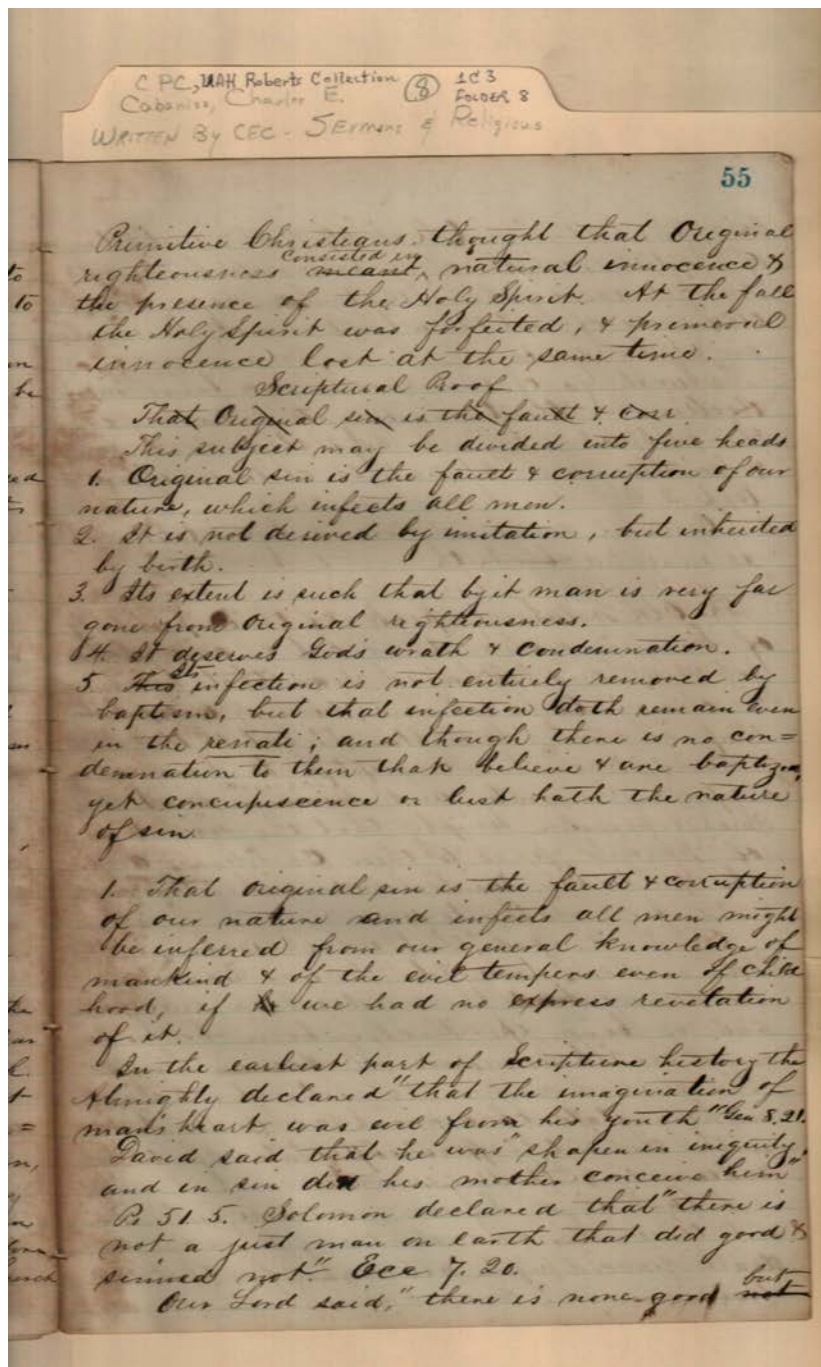 CPC, UAH Roberts Collection
8
1C3
FOLDER 8
Cabaniss, Charles E.
WRITTEN By CEC - SErmons & Religious
55
Primitive Christians thought that Original
consisted in
righteousness meant natural innocence &
the presence of the Holy Spirit. At the fall
the Holy Spirit was forfeited, & primeval
innocence lost at the same time.
Scriptural Proof
That Original sin is the fault & corr
This subject may be divided into five heads
1. Original sin is the fault & corruption of our
nature, which infects all men.
2. It is not derived by imitation, but inherited
by birth.
3. Its extent is such that by it man is very far
gone from Original righteousness.
4. It deserves God's wrath & condemnation.
5. This Its infection is not entirely removed by
baptism, but that infection doth remain even
in the renati; and though there is no con=
demnation to them that believe & are baptized,
yet concupiscence or lust hath the nature
of sin.
1. That original sin is the fault & corruption
of our nature and infects all men might
be inferred from our general knowledge of
mankind & of the evil tempers even of child
hood, if we had no express revelation
of it.
In the earliest part of Scripture history the
Almighty declared "that the imagination of
man's heart was evil from his youth" Gen 8.21.
David said that he was "shapen in iniquity,
and in sin did his mother conceive him"
Ps 51 5. Solomon declared that "there is
not a just man on earth that did good &
sinned not". Ecc 7. 20.
but
Our Lord said, "there is none good not
to
to
on
be
ed
ts
the
as
t
=
n,
on
urch